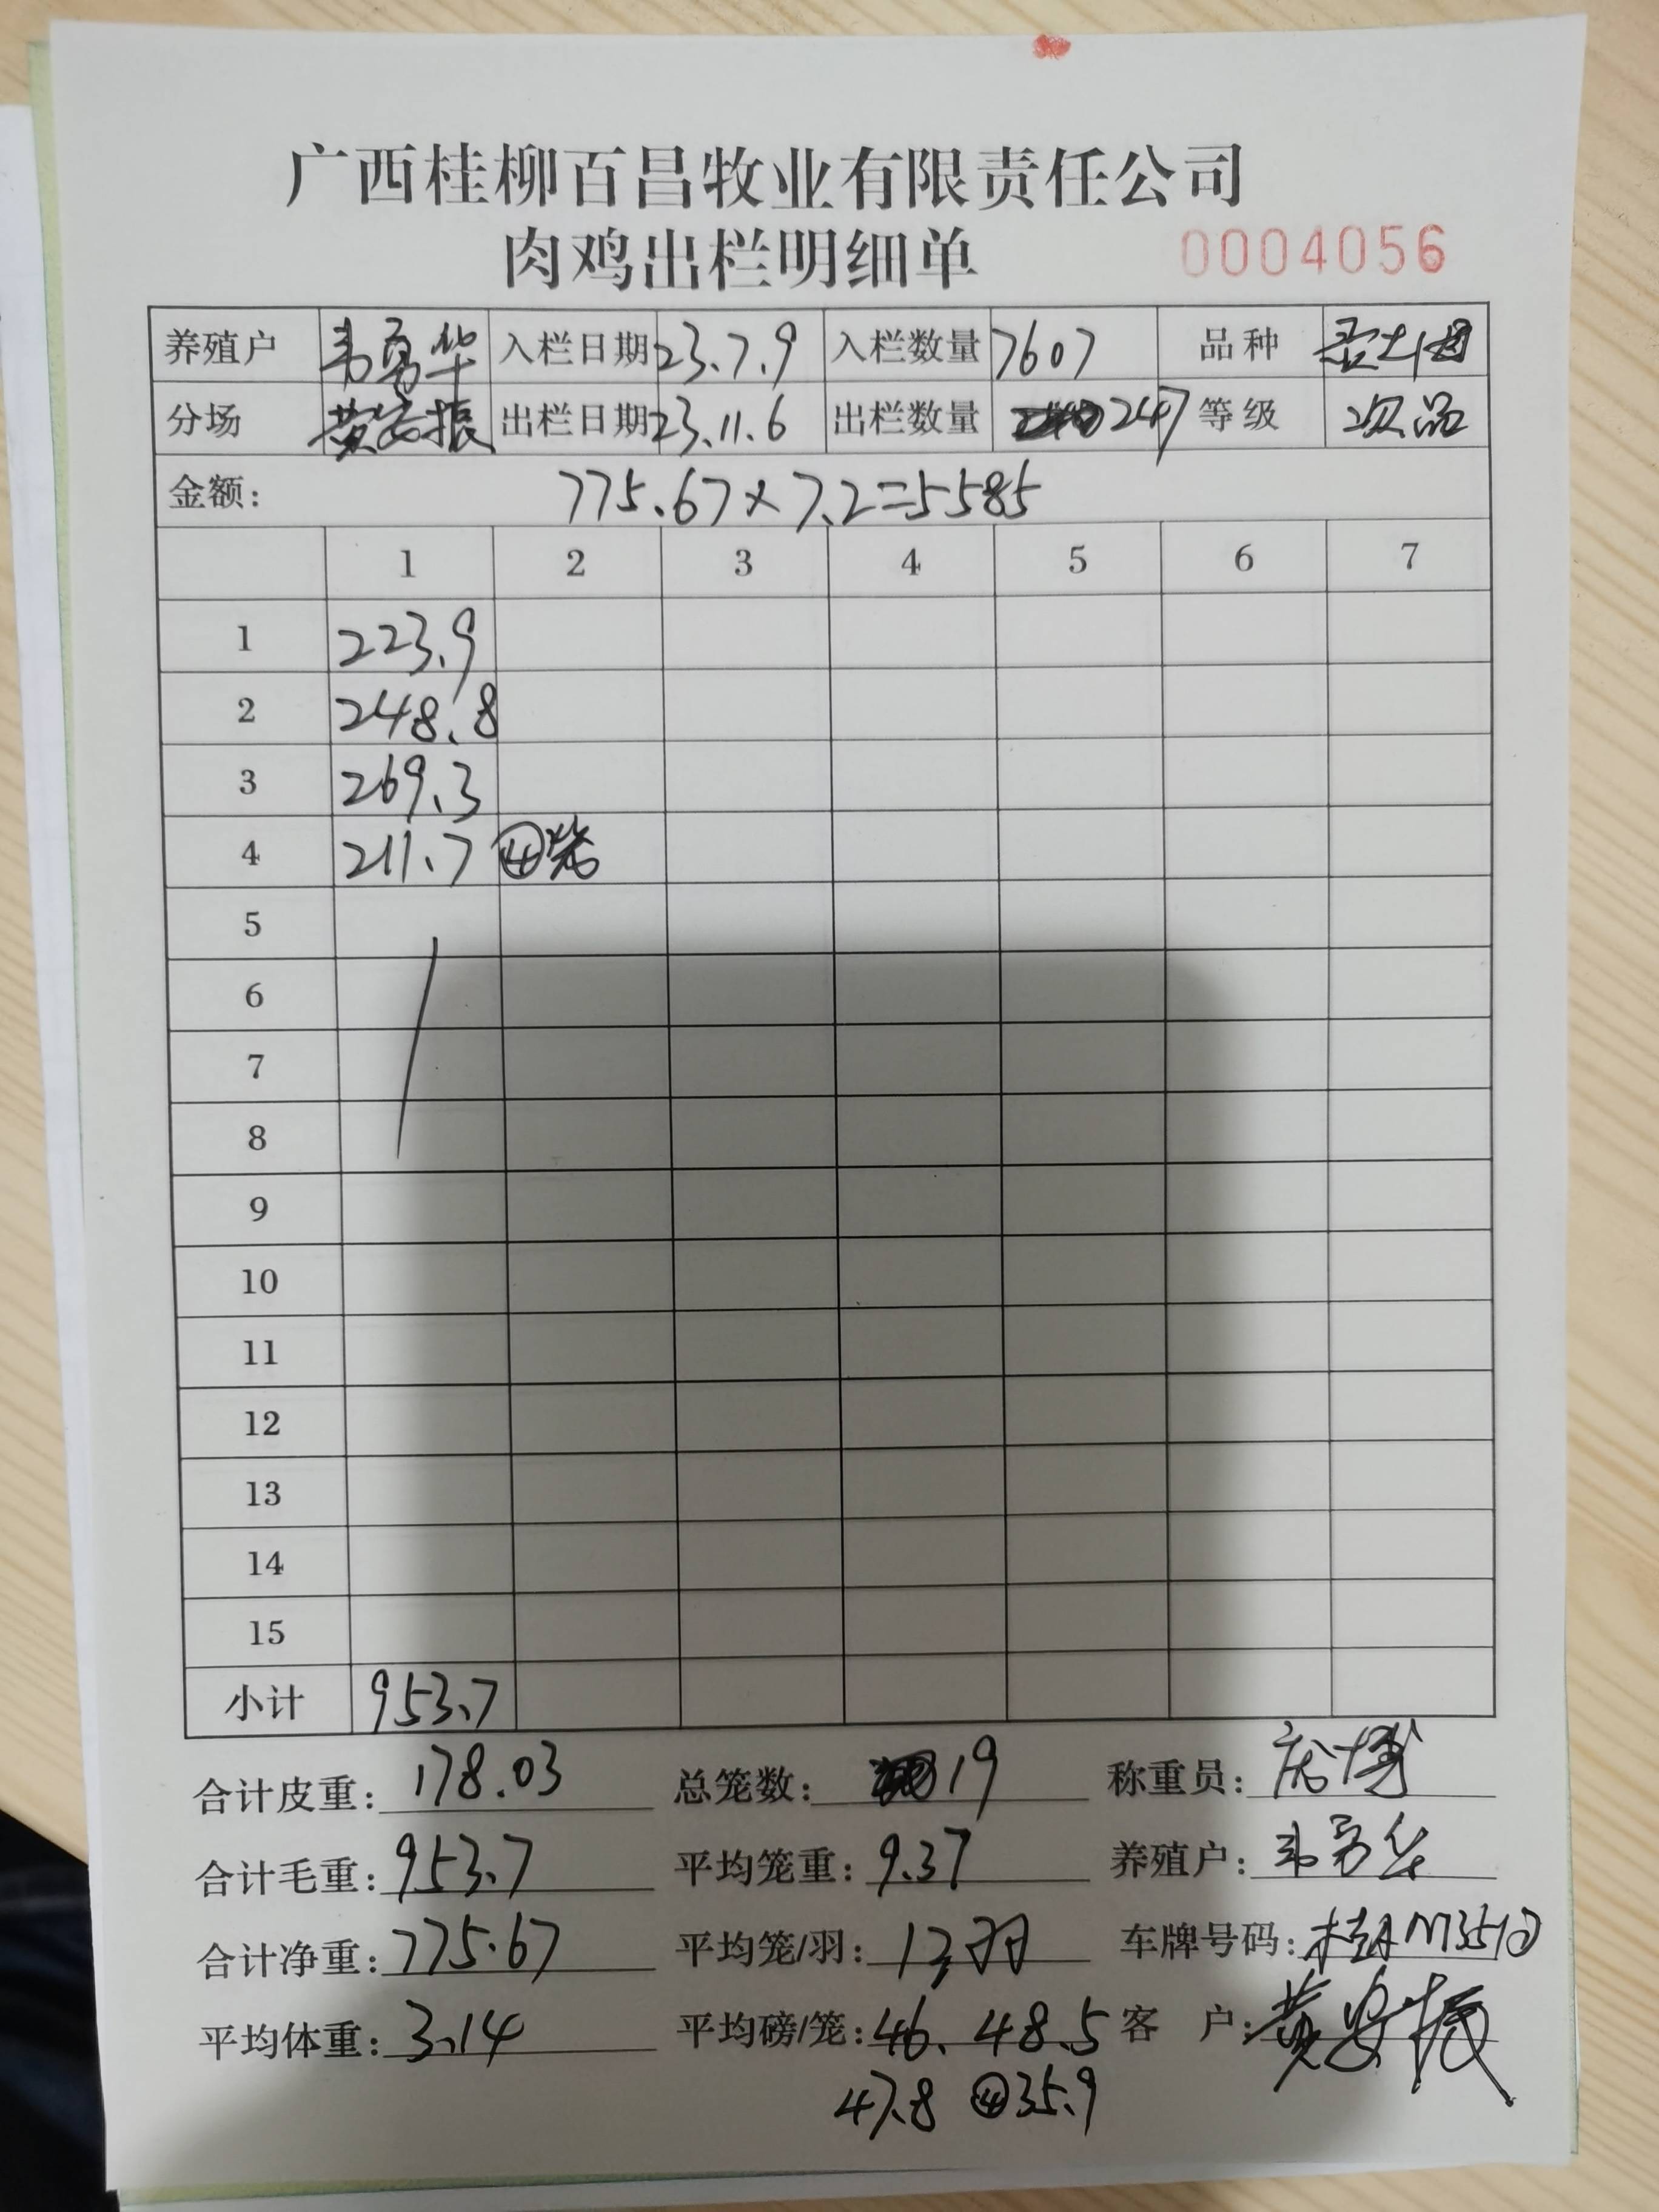 广西桂柳百昌牧业有限责任公司
肉鸡出栏明细单 0004056
养殖户 韦勇华 入栏日期 23.7.9 入栏数量 7607 品种
分场 黄安振 出栏日期 23.11.6 出栏数量 247 等级 次品
金额: 775.67×7.2=5585
1 2 3 4 5 6 7
1 223.9
2 248.8
3 269.3
4 211.7 ④笼
5
6
7
8
9
10
11
12
13
14
15
小计 953.7
合计皮重: 178.03 总笼数: 19 称重员:
合计毛重: 953.7 平均笼重: 9.37 养殖户: 韦勇华
合计净重: 775.67 平均笼/羽: 13羽 车牌号码:
平均体重: 3.14 平均磅/笼: 46. 48.5 客户: 黄安振
47.8 ④35.9